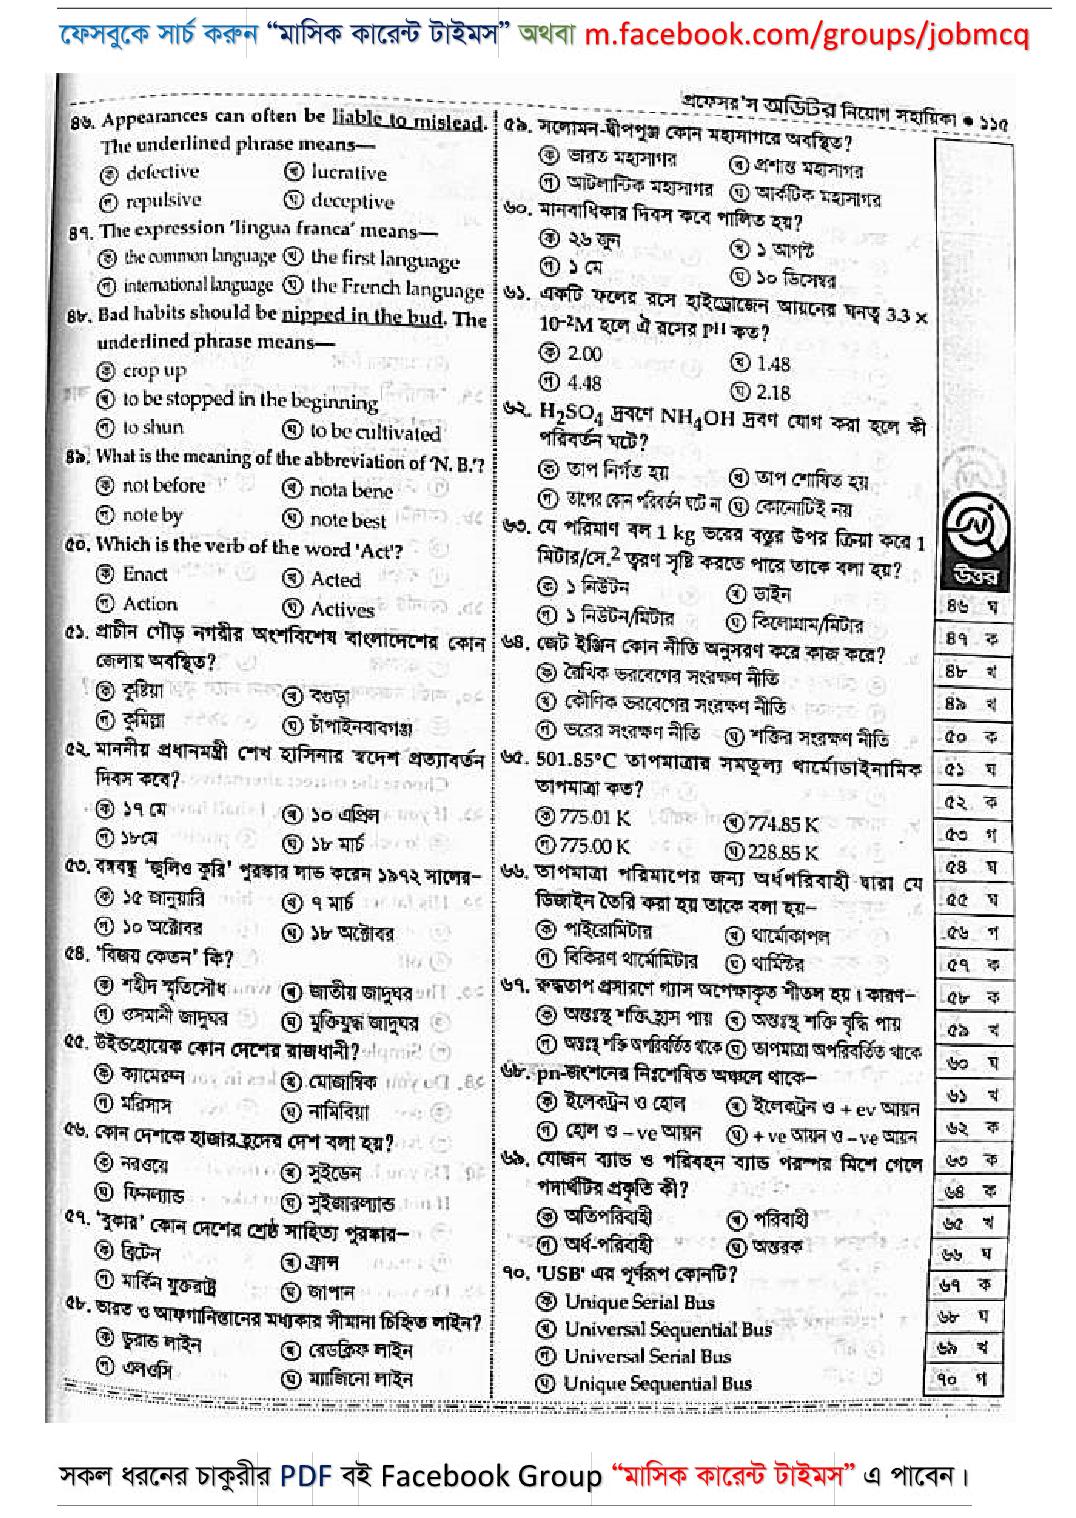 ফেসবুকে সার্চ করুন “মাসিক কারেন্ট টাইমস” অথবা m.facebook.com/groups/jobmcq
প্রফেসর'স অডিটর নিয়োগ সহায়িকা ● ১১৫
৪৬. Appearances can often be liable to mislead.
The underlined phrase means—
ক defective খ lucrative
গ repulsive ঘ deceptive
৪৭. The expression 'lingua franca' means—
ক the common language খ the first language
গ international language ঘ the French language
৪৮. Bad habits should be nipped in the bud. The
underlined phrase means—
ক crop up
খ to be stopped in the beginning
গ to shun ঘ to be cultivated
৪৯. What is the meaning of the abbreviation of 'N. B.'?
ক not before খ nota bene
গ note by ঘ note best
৫০. Which is the verb of the word 'Act'?
ক Enact খ Acted
গ Action ঘ Actives
৫১. প্রাচীন গৌড় নগরীর অংশবিশেষ বাংলাদেশের কোন
জেলায় অবস্থিত?
ক কুষ্টিয়া খ বগুড়া
গ কুমিল্লা ঘ চাঁপাইনবাবগঞ্জ
৫২. মাননীয় প্রধানমন্ত্রী শেখ হাসিনার স্বদেশ প্রত্যাবর্তন
দিবস কবে?
ক ১৭ মে খ ১০ এপ্রিল
গ ১৮মে ঘ ১৮ মার্চ
৫৩. বঙ্গবন্ধু 'জুলিও কুরি' পুরস্কার লাভ করেন ১৯৭২ সালের–
ক ১৫ জানুয়ারি খ ৭ মার্চ
গ ১০ অক্টোবর ঘ ১৮ অক্টোবর
৫৪. 'বিজয় কেতন' কি?
ক শহীদ স্মৃতিসৌধ খ জাতীয় জাদুঘর
গ ওসমানী জাদুঘর ঘ মুক্তিযুদ্ধ জাদুঘর
৫৫. উইন্ডহোয়েক কোন দেশের রাজধানী?
ক ক্যামেরুন খ মোজাম্বিক
গ মরিসাস ঘ নামিবিয়া
৫৬. কোন দেশকে হাজার হ্রদের দেশ বলা হয়?
ক নরওয়ে খ সুইডেন
ঘ ফিনল্যান্ড ঘ সুইজারল্যান্ড
৫৭. 'বুকার' কোন দেশের শ্রেষ্ঠ সাহিত্য পুরস্কার–
ক ব্রিটেন খ ফ্রান্স
গ মার্কিন যুক্তরাষ্ট্র ঘ জাপান
৫৮. ভারত ও আফগানিস্তানের মধ্যকার সীমানা চিহ্নিত লাইন?
ক ডুরান্ড লাইন খ রেডক্লিফ লাইন
গ এলওসি ঘ ম্যাজিনো লাইন
৫৯. সলোমন-দ্বীপপুঞ্জ কোন মহাসাগরে অবস্থিত?
ক ভারত মহাসাগর খ প্রশান্ত মহাসাগর
গ আটলান্টিক মহাসাগর ঘ আর্কটিক মহাসাগর
৬০. মানবাধিকার দিবস কবে পালিত হয়?
ক ২৬ জুন খ ১ আগস্ট
গ ১ মে ঘ ১০ ডিসেম্বর
৬১. একটি ফলের রসে হাইড্রোজেন আয়নের ঘনত্ব 3.3 ×
10-2M হলে ঐ রসের pH কত?
ক 2.00 খ 1.48
গ 4.48 ঘ 2.18
৬২. H2SO4 দ্রবণে NH4OH দ্রবণ যোগ করা হলে কী
পরিবর্তন ঘটে?
ক তাপ নির্গত হয় খ তাপ শোষিত হয়
গ তাপের কোন পরিবর্তন ঘটে না ঘ কোনোটিই নয়
৬৩. যে পরিমাণ বল 1 kg ভরের বস্তুর উপর ক্রিয়া করে 1
মিটার/সে.2 ত্বরণ সৃষ্টি করতে পারে তাকে বলা হয়?
ক ১ নিউটন খ ডাইন
গ ১ নিউটন/মিটার ঘ কিলোগ্রাম/মিটার
৬৪. জেট ইঞ্জিন কোন নীতি অনুসরণ করে কাজ করে?
ক রৈখিক ভরবেগের সংরক্ষণ নীতি
খ কৌণিক ভরবেগের সংরক্ষণ নীতি
গ ভরের সংরক্ষণ নীতি ঘ শক্তির সংরক্ষণ নীতি
৬৫. 501.85°C তাপমাত্রার সমতুল্য থার্মোডাইনামিক
তাপমাত্রা কত?
ক 775.01 K খ 774.85 K
গ 775.00 K ঘ 228.85 K
৬৬. তাপমাত্রা পরিমাপের জন্য অর্ধপরিবাহী দ্বারা যে
ডিজাইন তৈরি করা হয় তাকে বলা হয়–
ক পাইরোমিটার খ থার্মোকাপল
গ বিকিরণ থার্মোমিটার ঘ থার্মিস্টর
৬৭. রুদ্ধতাপ প্রসারণে গ্যাস অপেক্ষাকৃত শীতল হয়। কারণ–
ক অন্তঃস্থ শক্তি হ্রাস পায় খ অন্তঃস্থ শক্তি বৃদ্ধি পায়
গ অন্তঃস্থ শক্তি অপরিবর্তিত থাকে ঘ তাপমাত্রা অপরিবর্তিত থাকে
৬৮. pn-জংশনের নিঃশেষিত অঞ্চলে থাকে–
ক ইলেকট্রন ও হোল খ ইলেকট্রন ও + ev আয়ন
গ হোল ও – ve আয়ন ঘ + ve আয়ন ও – ve আয়ন
৬৯. যোজন ব্যান্ড ও পরিবহন ব্যান্ড পরস্পর মিশে গেলে
পদার্থটির প্রকৃতি কী?
ক অতিপরিবাহী খ পরিবাহী
গ অর্ধ-পরিবাহী ঘ অন্তরক
৭০. 'USB' এর পূর্ণরূপ কোনটি?
ক Unique Serial Bus
খ Universal Sequential Bus
গ Universal Serial Bus
ঘ Unique Sequential Bus
উত্তর
৪৬ ঘ
৪৭ ক
৪৮ খ
৪৯ খ
৫০ ক
৫১ ঘ
৫২ ক
৫৩ গ
৫৪ ঘ
৫৫ ঘ
৫৬ গ
৫৭ ক
৫৮ ক
৫৯ খ
৬০ ঘ
৬১ খ
৬২ ক
৬৩ ক
৬৪ ক
৬৫ খ
৬৬ ঘ
৬৭ ক
৬৮ ঘ
৬৯ খ
৭০ গ
সকল ধরনের চাকুরীর PDF বই Facebook Group “মাসিক কারেন্ট টাইমস” এ পাবেন।